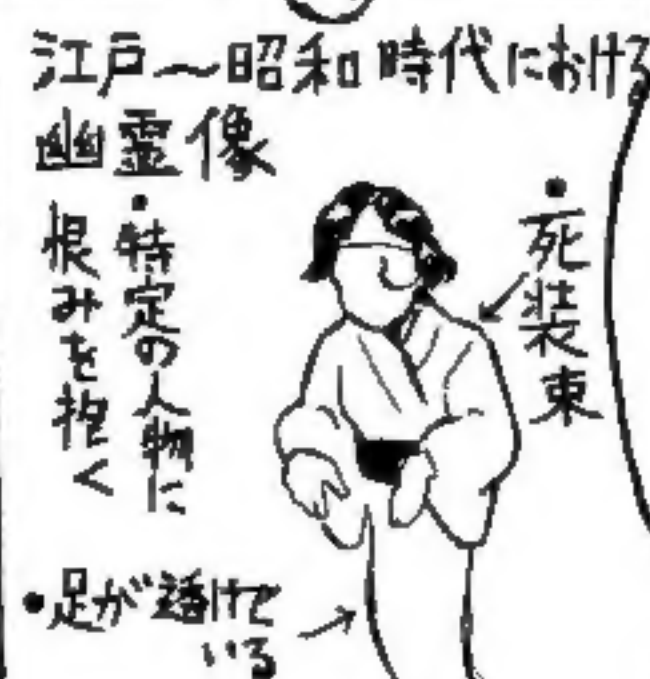 江戸〜昭和時代における
幽霊像
・死装束
・特定の人物に
恨みを抱く
・足が透けて
いる